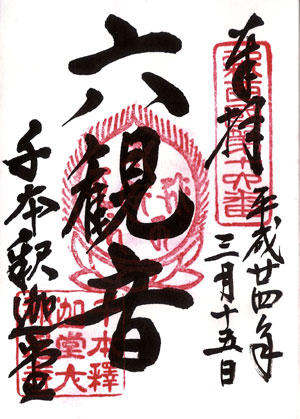 奉拝
平成廿四年
三月十五日
六観音
千本釈迦堂
千本釋
迦堂大